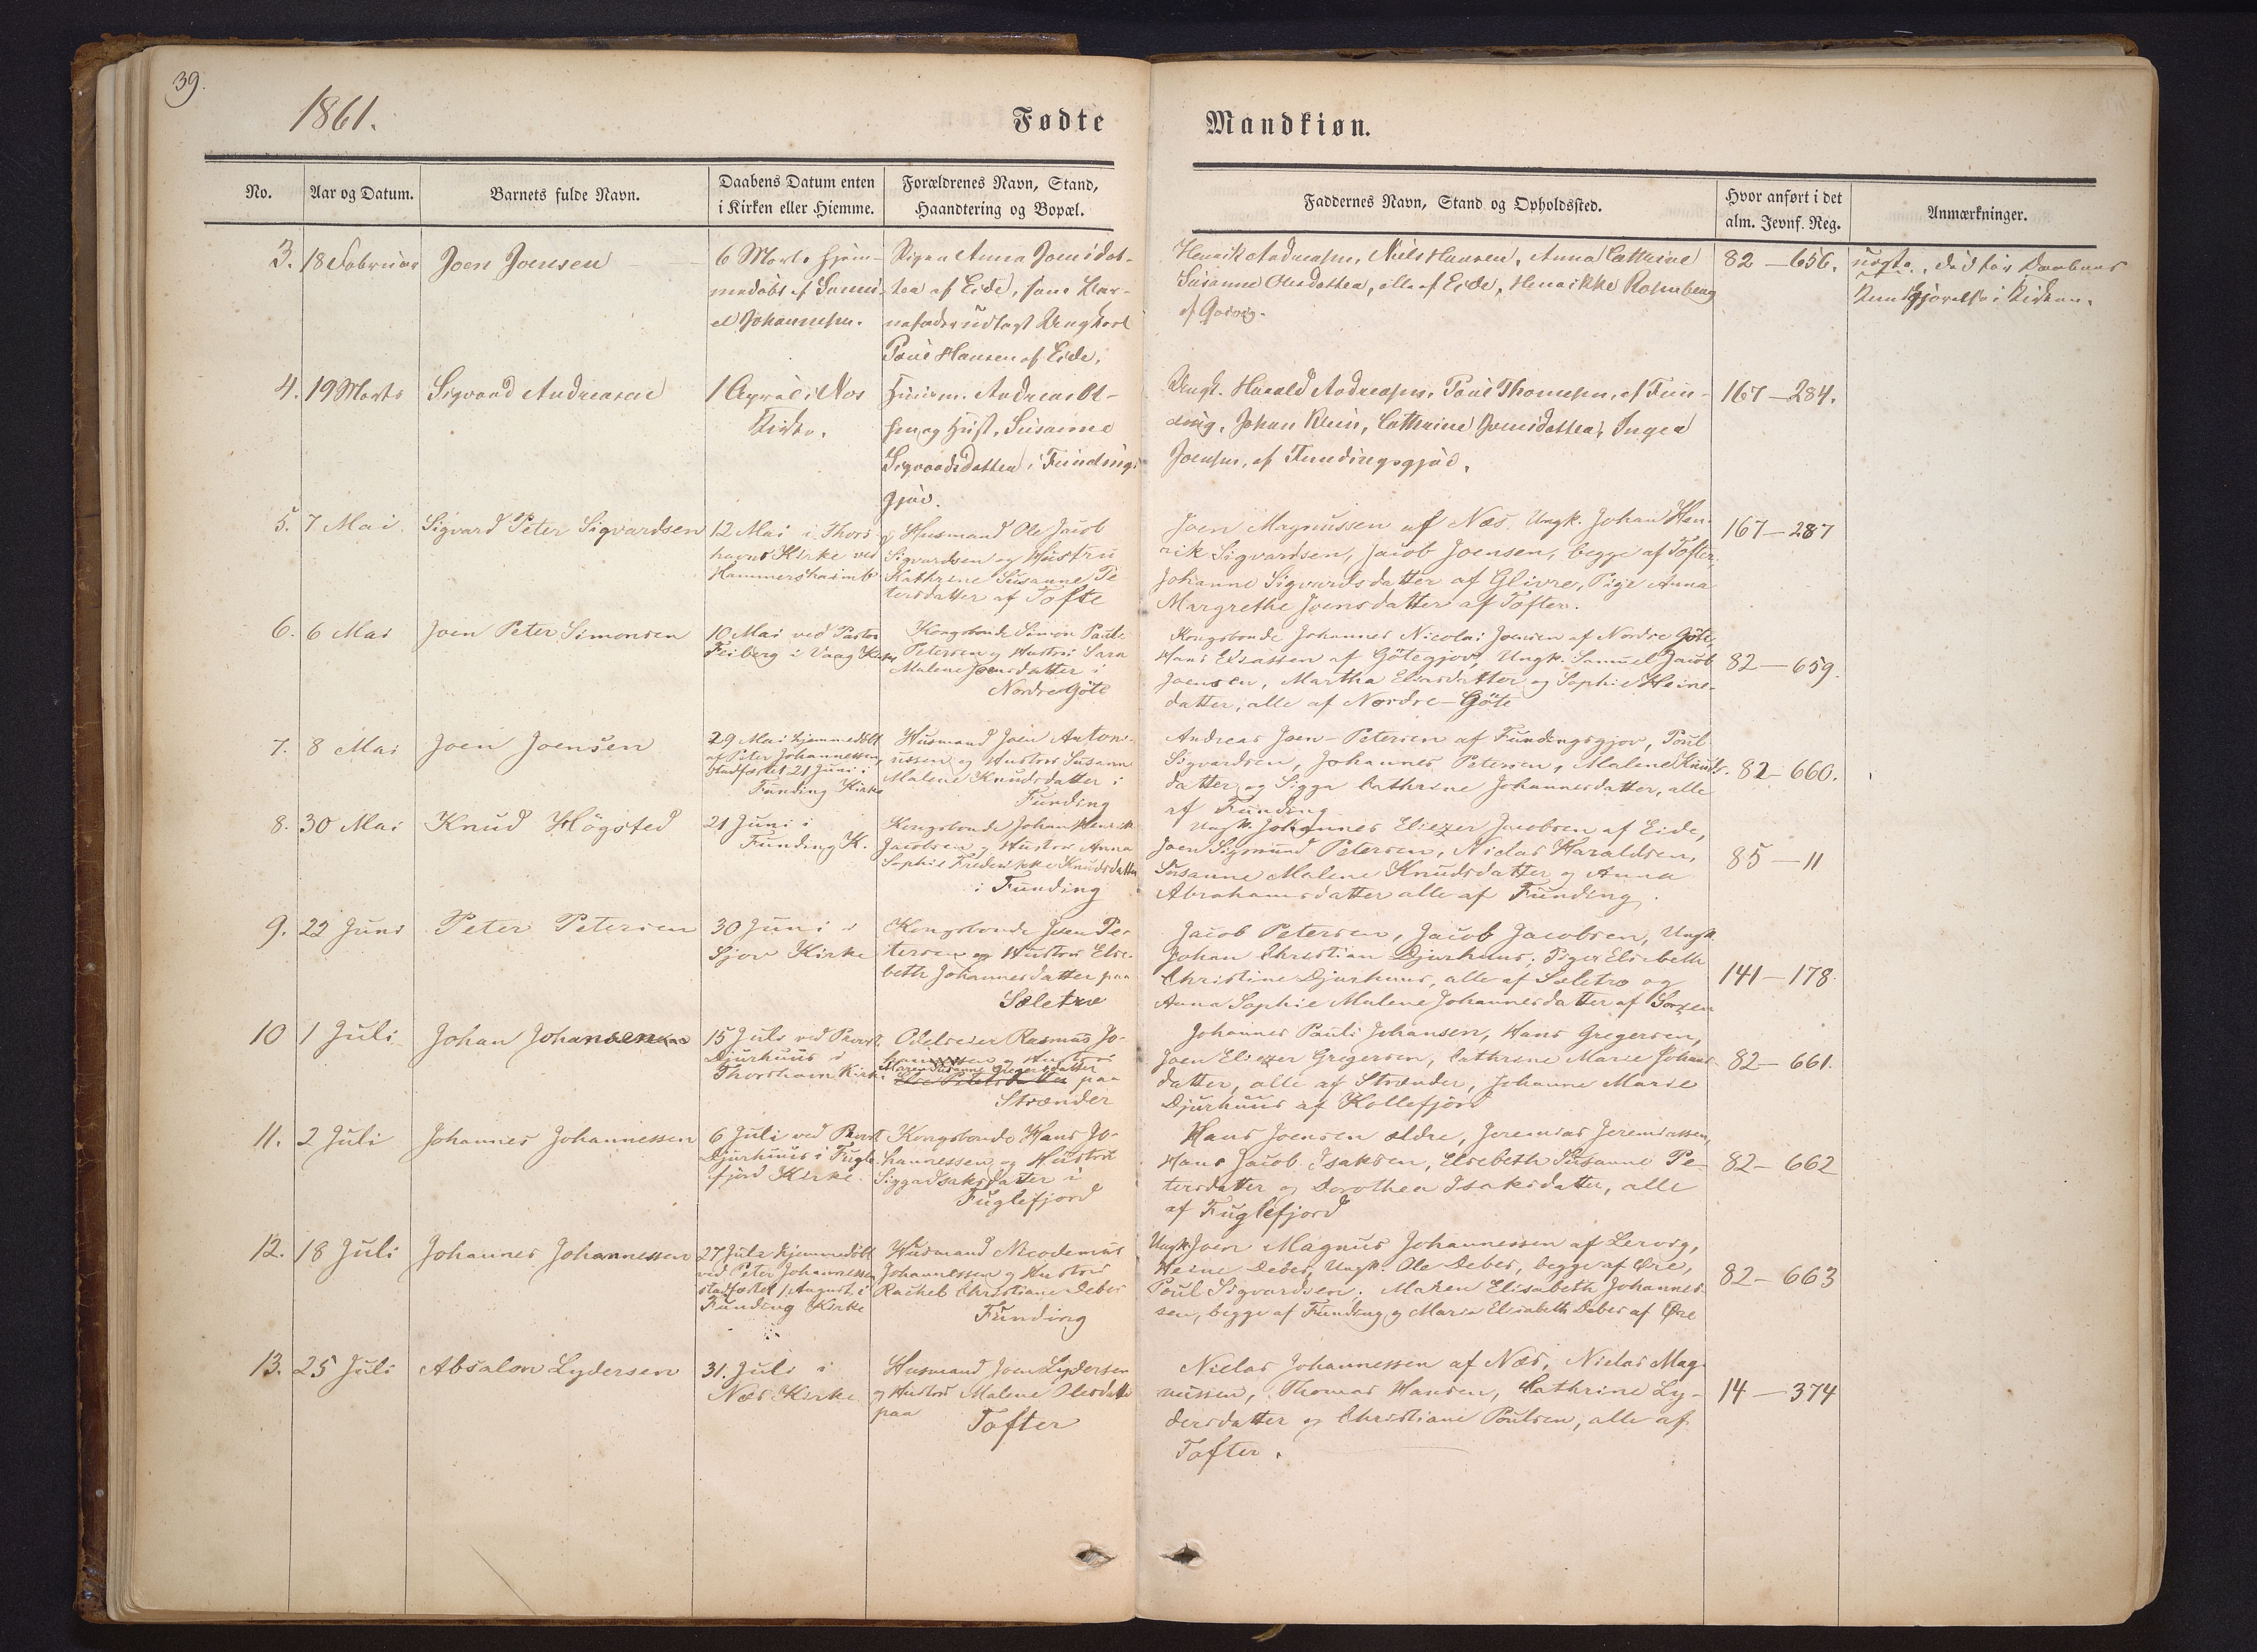 39.
1861.
Fødte
Mandkiøn.
No.
Aar og Datum.
Barnets fulde Navn.
Daabens Datum enten
i Kirken eller Hiemme.
Forældrenes Navn, Stand,
Haandtering og Bopæl.
Faddernes Navn, Stand og Opholdssted.
Hvor anført i det
alm. Jevnf. Reg.
Anmærkninger.
3.
18 Februar
Joen Joensen
6 Marts hjem-
medøbt af Samu-
el Johannesen.
Pigen Anna Joensdat-
ter af Eide, som Bar-
nefader udlagt Ungkarl
Poul Hansen af Eide.
Henrik Andreasen, Niels Hansen, Anna Cathrine
Susanne Olesdatter, alle af Eide, Henrikke Rosenberg
af
82 – 656.
uægte, død før Daabens
Kundgjørelse i Kirken.
4.
19 Marts
Sigvard Andreasen
1 April i Næs
Kirke.
Huusm. Andreas Ol-
sen og Hust. Susanne
Sigvardsdatter i Fundings
gjov.
Ungk. Harald Andreasen, Poul Thomesen, af Fun-
ding, Johan Klein, Cathrine Joensdatter, Inger
Joensen, af Fundingsgjov.
167 – 284.
5.
7 Mai
Sigvard Peter Sigvardsen
12 Mai i Thors
havns Kirke ved
Hammershaimb
Husmand Ole Jacob
Sigvardsen og Hustru
Kathrine Susanne Pe
tersdatter af Tofte
Joen Magnussen af Næs, Ungk. Johan Hen-
rik Sigvardsen, Jacob Joensen, begge af Tofter,
Johanne Sigvardsdatter af Glivre, Pige Anna
Margrethe Joensdatter af Tofter.
167 – 287
6.
6 Mai
Joen Peter Simonsen
10 Mai ved Pastor
Feiberg i Vaag Kirke
Kongsbonde Simon Pauli
Petersen og Hustru Sara
Malene Joensdatter i
Nordre Göte
Kongsbonde Johannes Nicolai Joensen af Nordre Göte,
Hans Eliassen af Götegjov, Ungk. Samuel Jacob
Joensen, Martha Eliasdatter og Sophie Heine-
datter, alle af Nordre-Göte
82 – 659.
7.
8 Mai
Joen Joensen
29 Mai hjemmedöbt
af Peter Johannessen,
stadfæstet 21 Juni i
Funding Kirke
Husmand Joen Anton-
iussen og Hustru Susann
Malene Knudsdatter i
Funding
Andreas Joen-Petersen af Fundingsgjov, Poul
Sigvardsen, Johannes Petersen, Malene Knuds-
datter og Sigga Cathrine Johannesdatter, alle
af Funding
82 – 660.
8.
30 Mai
Knud Högsted
21 Juni i
Funding K.
Kongsbonde Johan Henrik
Jacobsen og Hustru Anna
Sophie Frederikke Knudsdatter
i Funding
Ungk. Johannes Eliezer Jacobsen af Eide,
Joen Sigmund Petersen, Niclas Haraldsen,
Susanne Malene Knudsdatter og Anna
Abrahamsdatter alle af Funding.
85 – 11
9.
22 Juni
Peter Petersen
30 Juni i
Sjov Kirke
Kongsbonde Joen Pe-
tersen og Hustru Else-
beth Johannesdatter paa
Sæletræ
Jacob Petersen, Jacob Jacobsen, Ungk.
Johan Christian Djurhuus, Piger Elsebeth
Christine Djurhuus, alle af Sæletræ og
Anna Sophie Malene Johannesdatter af
141 – 178.
10
1 Juli
Johan Johansen
15 Juli ved Provst
Djurhuus i
Thorshavn Kirke
Odelseier Rasmus Jo-
hansen og Hustru
Maren Susanne Gregersdatter
paa
Strænder
Johannes Pauli Johansen, Hans Gregersen,
Joen Eliezer Gregersen, Cathrine Marie Johans-
datter, alle af Strænder, Johanne Marie
Djurhuus af Kollefjord
82 – 661.
11.
2 Juli
Johannes Johannessen
6 Juli ved Provst
Djurhuus i Fugle-
fjord Kirke.
Kongsbonde Hans Jo-
hannessen og Hustru
Sigga Isaksdatter i
Fuglefjord
Hans Joensen ældre, Jeremias Jeremiassen,
Hans Jacob Isaksen, Elsebeth Susanne Pe-
tersdatter og Dorothea Isaksdatter, alle
af Fuglefjord
82 – 662
12.
18 Juli
Johannes Johannessen
27 Juli hjemmedöbt
ved Peter Johannessen
stadfæstet 1 August i
Funding Kirke
Husmand Nicodemus
Johannessen og Hustru
Rachel Christiane Debes
Funding
Ungk. Joen Magnus Johannessen af Lervig,
Heine Debes, Ungk. Ole Debes, begge af Øre,
Poul Sigvardsen, Maren Elisabeth Johannes-
sen, begge af Funding og Maria Elisabeth Debes af Øre
82 – 663
13.
25 Juli
Absalon Lydersen
31. Juli i
Næs Kirke
Husmand Joen Lydersen
og Hustru Malene Olesdatter
paa
Tofter
Niclas Johannessen af Næs, Niclas Mag-
nussen, Thomas Hansen, Cathrine Ly-
dersdatter og Christiane Poulsen, alle af
Tofter.
14 – 374